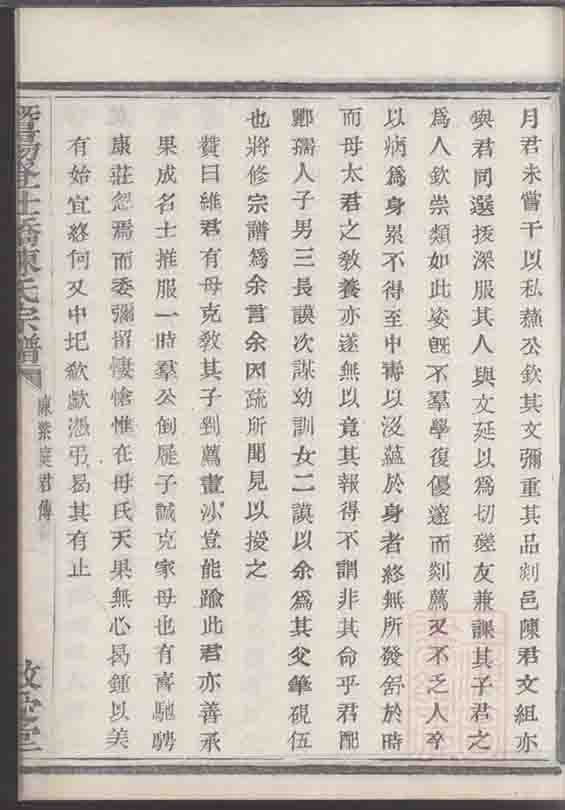 月君未嘗干以私燕公欽其文彌重其品剡邑陳君文組亦
與君同選拔深服其人與文延以爲切磋友兼課其子君之
爲人欽崇類如此姿旣不羣學復優邃而剡薦又不乏人卒
以病爲身累不得至中壽以沒蘊於身者終無所發舒於時
而母太君之敎養亦遂無以竟其報得不謂非其命乎君配
酈孺人子男三長謨次謀幼訓女二謨以余爲其父筆硯伍
也將修宗譜爲余言余因疏所聞見以授之
贊曰維君有母克敎其子剉薦畫沙豈能踰此君亦善承
果成名士推服一時羣公倒屣子誠克家母也有喜馳騁
康莊忽焉而委彌留悽愴惟在母氏天果無心曷鍾以美
有始宜終何又中圮欷歔憑弔曷其有止
暨陽 士橋陳氏宗譜
陳紫庭君傳
敘堂